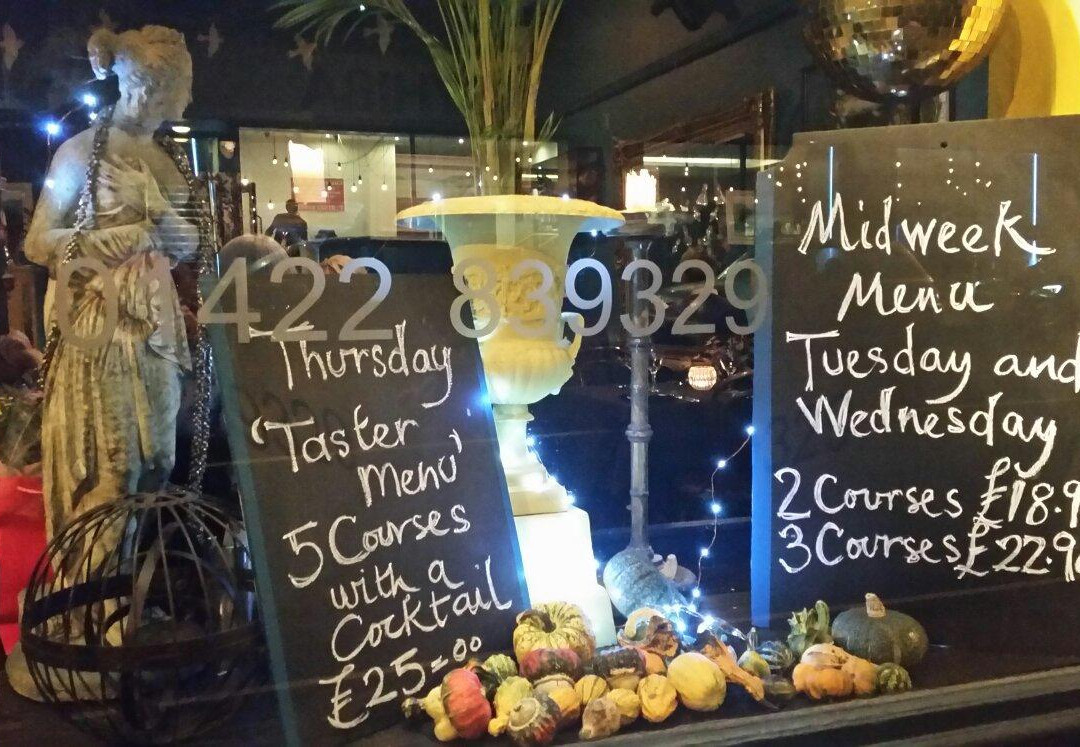 01422 839329
Thursday
'Taster
Menu'
5 Courses
with a
Cocktail
£25=00
Midweek
Menu
Tuesday and
Wednesday
2 Courses £18.9
3 Courses £22.9